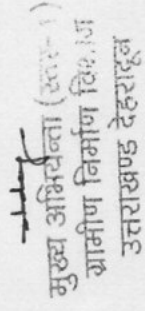 मुख्य अभियन्ता
ग्रामीण निर्माण विभाग
उत्तराखण्ड देहरादून